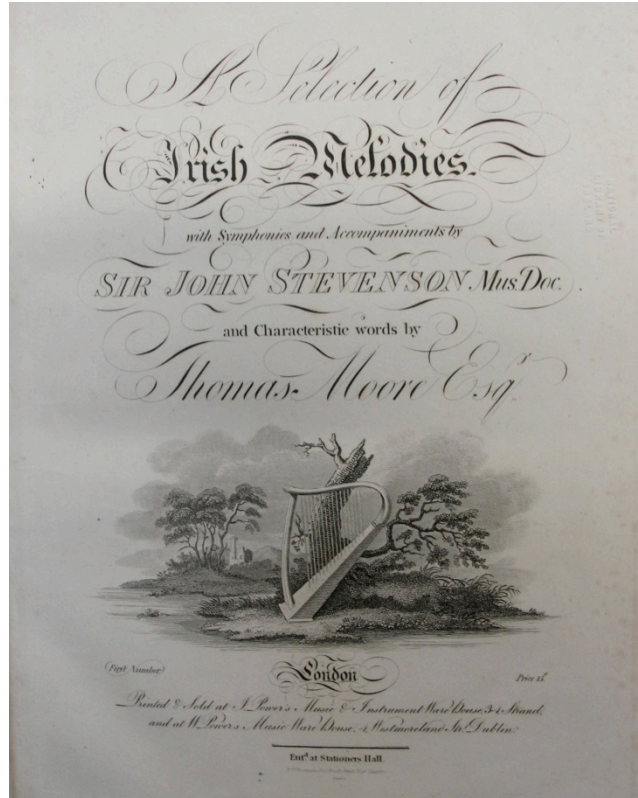 A Selection of
Irish Melodies.
with Symphonies and Accompaniments by
SIR JOHN STEVENSON Mus. Doc.
and Characteristic words by
Thomas Moore Esqr.
(First Number)
London
Price 15s.
Printed & Sold at J. Power's Music & Instrument Ware House, 34 Strand,
and at W. Power's Music Ware House, 4 Westmoreland Str. Dublin.
Entd. at Stationers Hall